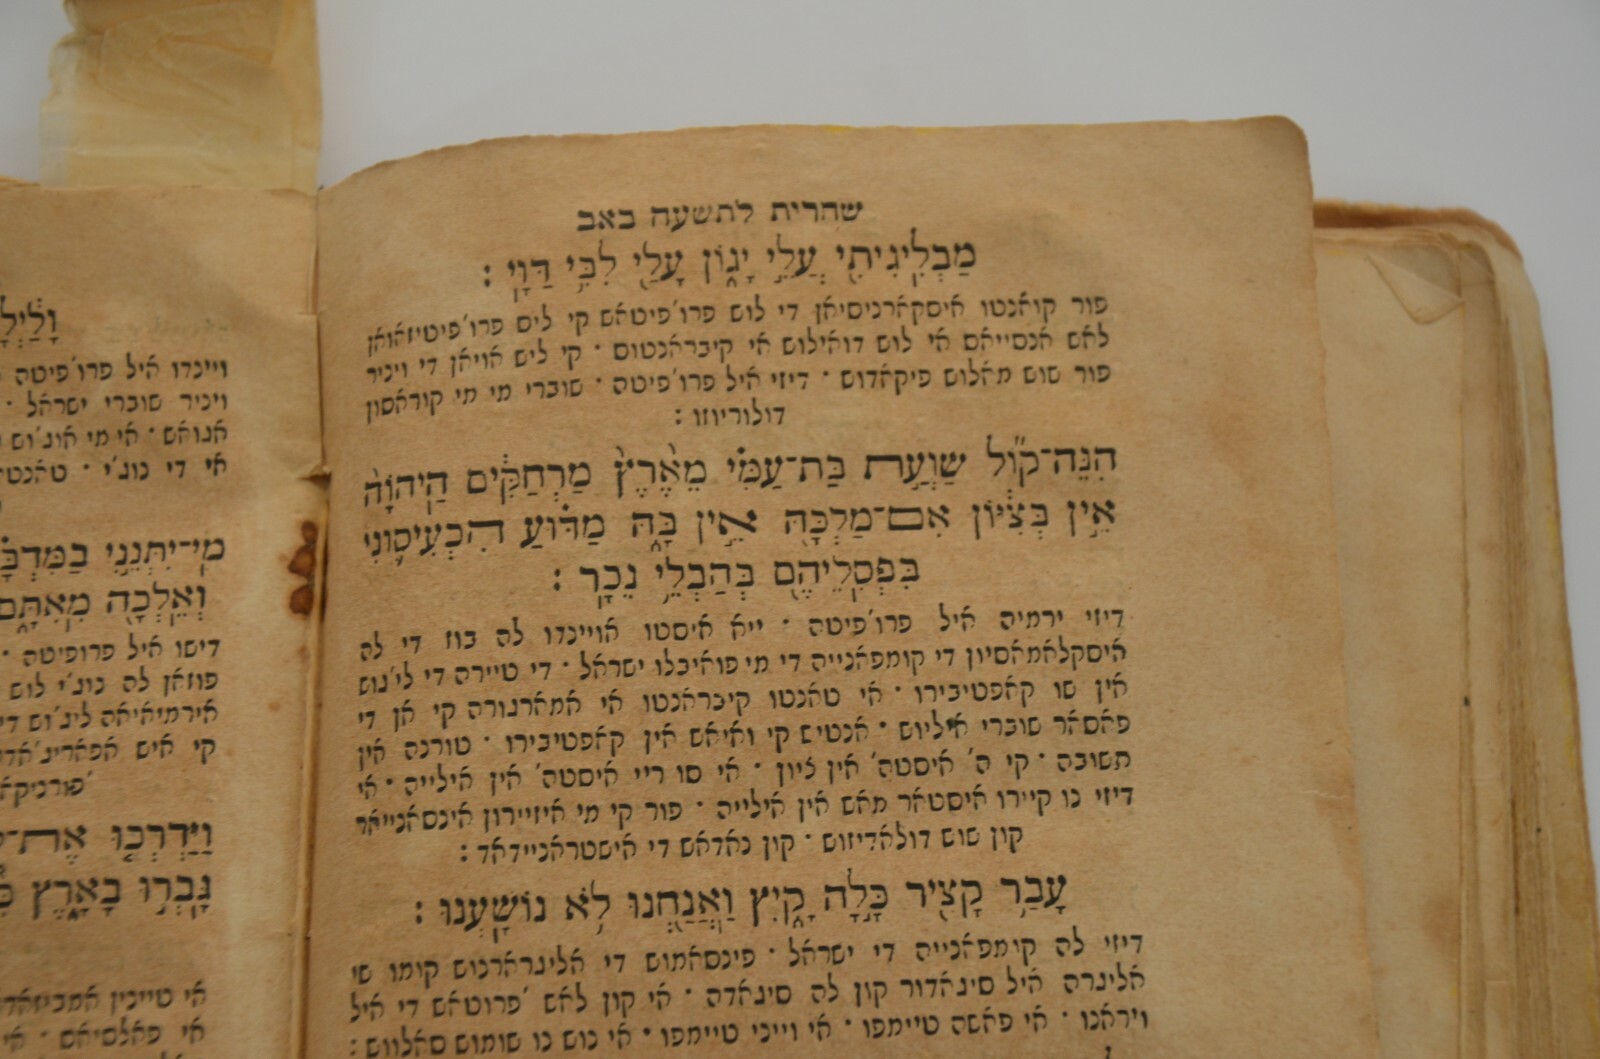 שחרית לתשעה באב
מַבְלִיגִיתִי עֲלֵי יָגוֹן עָלַי לִבִּי דַּוָּי :
פור קואנטו איסקארניסיאן די לוש פרו'פיטאש קי ליס פרו'פיטיזאואן
לאש אנסייאס אי לוש דואילוש אי קיבראנטוס · קי ליש אויאן די ויניר
פור שוש מאלוש פיקאדוש · דיזי איל פרו'פיטה · שוברי מי מי קוראסון
דולוריוזו :
הִנֵּה־קוֹל שַׁוְעַת בַּת־עַמִּי מֵאֶרֶץ מַרְחַקִּים הַיהוָה
אֵין בְּצִיּוֹן אִם־מַלְכָּהּ אֵין בָּהּ מַדּוּעַ הִכְעִיסוּנִי
בִּפְסִלֵיהֶם בְּהַבְלֵי נֵכָר :
דיזי ירמיה איל פרו'פיטה · ייא איסטו אויינדו לה בוז די לה
איסקלאמאסיון די קומפאנייה די מי פואיבלו ישראל · די טיירה די לי'נוש
אין שו קאפטיבירו · אי טאנטו קיבראנטו אי אמארגורה קי אן די
פאסאר שוברי אֵיליוש · אנטיס קי ואיאש אין קאפטיבירו · טורנה אין
תשובה · קי ה' איסטה' אין ציון · אי סו ריי איסטה' אין אילייה · אי
דיזי נו קיירו איסטאר מאש אין אילייה · פור קי מי איזיירון אינסאנייאר
קון שוש דולאדיזוש · קון נאדאש די אישטראניידאד :
עָבַר קָצִיר כָּלָה קָיִץ וַאֲנַחְנוּ לֹא נוֹשָׁעְנוּ :
דיזי לה קומפאנייה די ישראל · פינסאמוש די אליגרארנוש קומו שי
אליגרה איל סיגאדור קון לה סיגאדה · אי קון לאש 'פרוטאש די איל
ויראנו · אי פאשה טיימפו · אי וייני טיימפו · אי נוש נו שומוש סאלווש :
וייננדו איל פרו'פיטה
ויניר שוברי ישראל ·
אנואש · אי מי אונ'וש
אי די נונ'י · טאנט
מִי־יִתְּנֵנִי
וְאֵלְכָה מֵאִתָּם
דישו איל פרופיטה ·
פוזאן לה נונ'י לוש
קי איש אפארינ'אד
וַיַּדְרְכוּ אֶת־
גָּבְרוּ בָאָרֶץ
אי פאלסיאס · אי